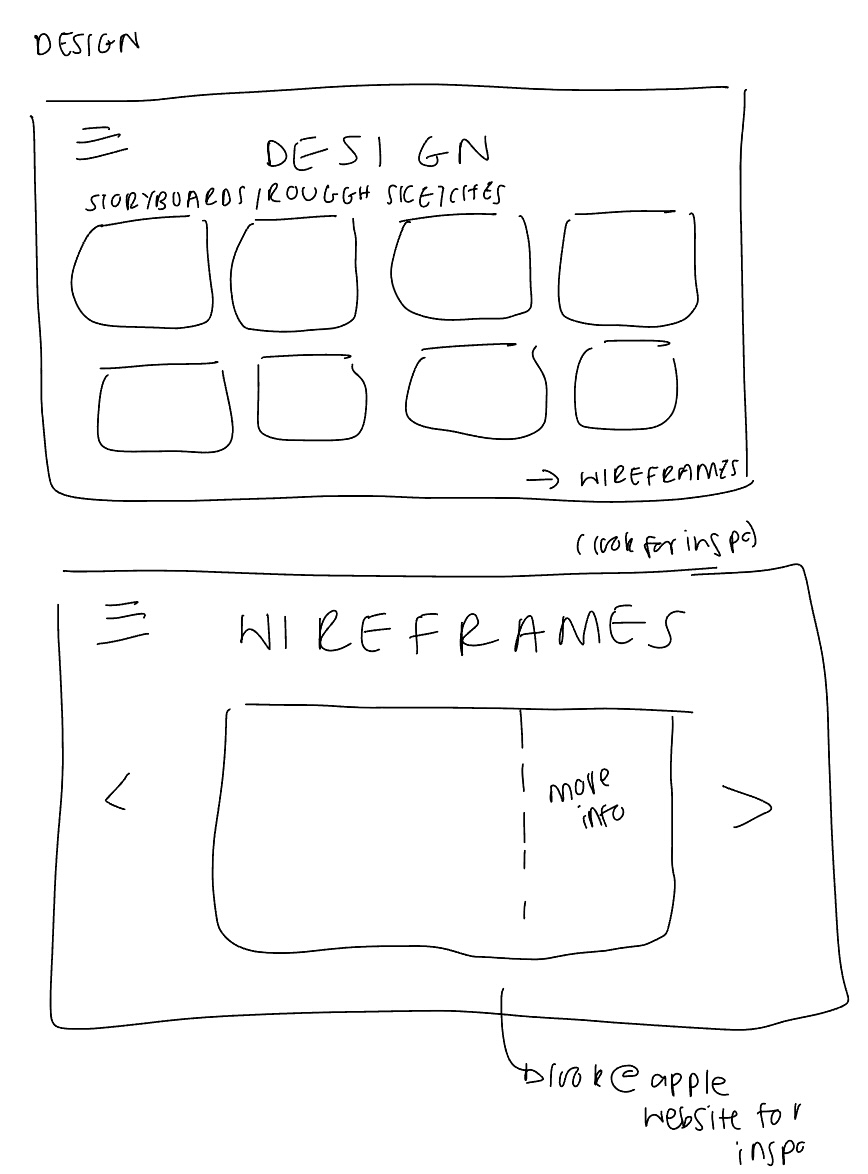 DESIGN
DESIGN
STORYBOARDS/ROUGGH SKETCHES
→ WIREFRAMES
(look for inspo)
WIREFRAMES
<
more
info
>
look @ apple
website for
inspo